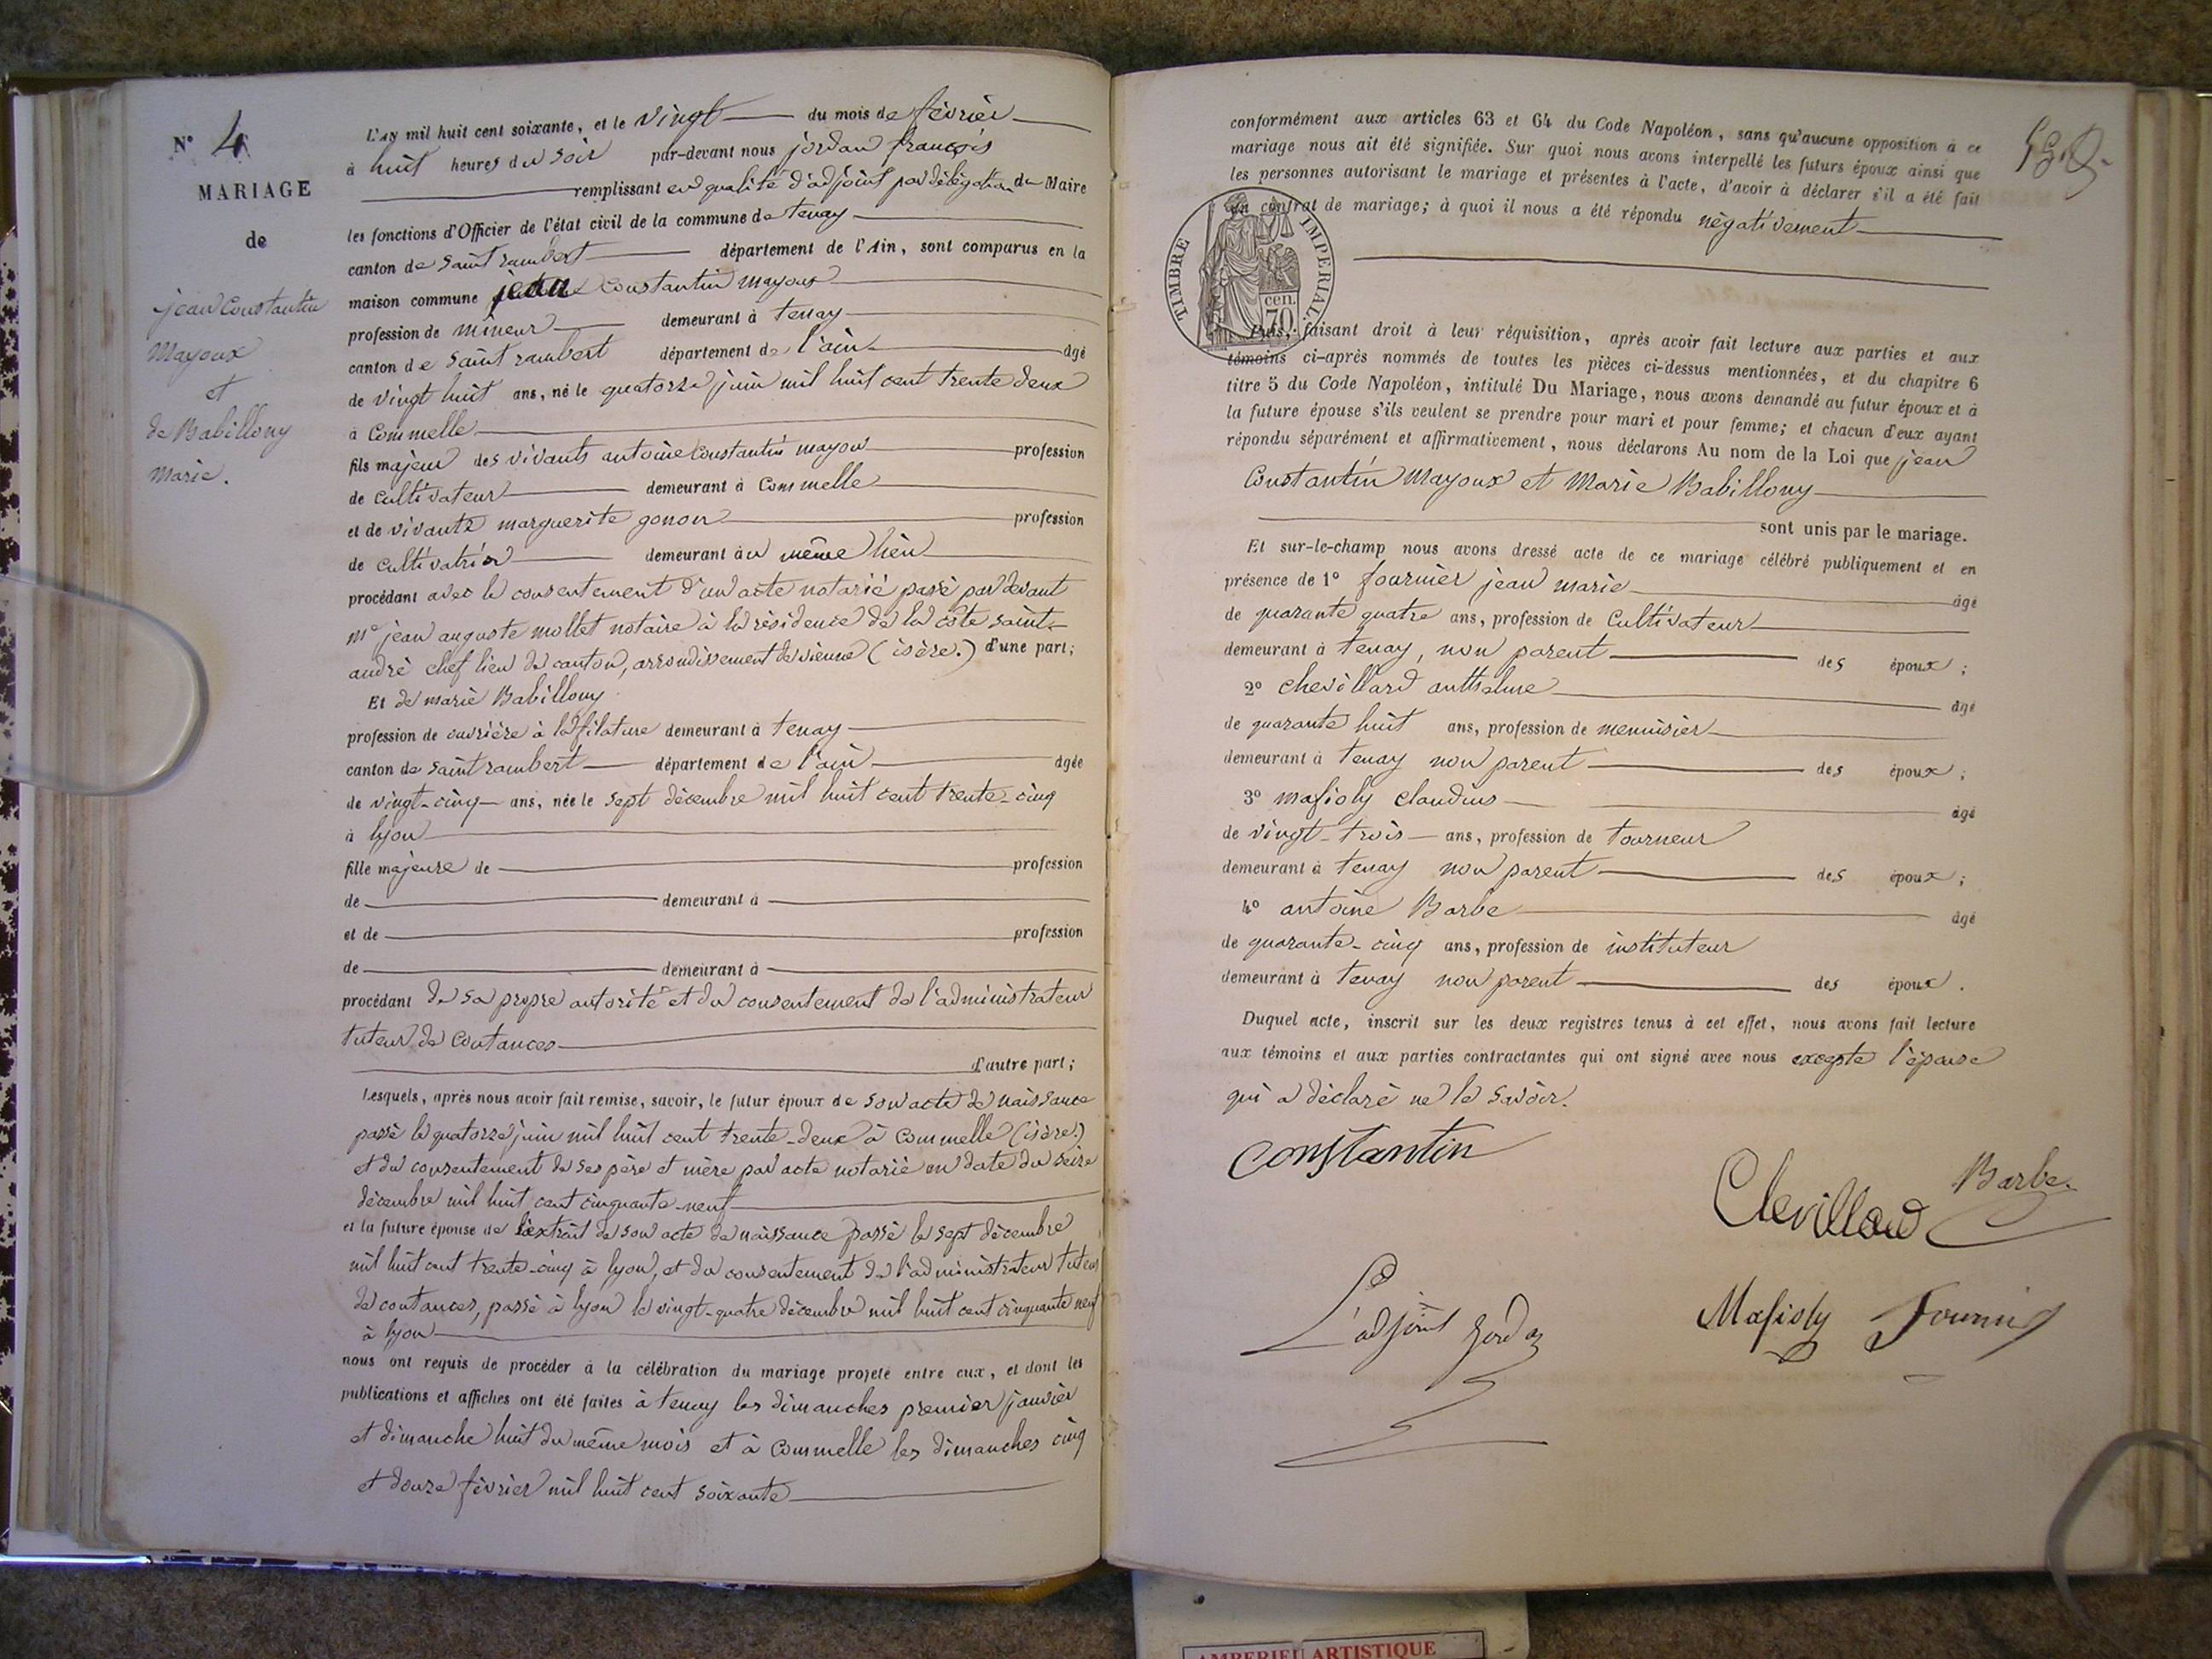 N° 4
MARIAGE
de
jean Constantin
Mayoux
et
de Babillony
Marie.
L'AN mil huit cent soixante, et le vingt du mois de février
à huit heures du soir par-devant nous jordan françois
remplissant en qualité d'adjoint par délégation du Maire
les fonctions d'Officier de l'état civil de la commune de tenay
canton de saint rambert département de l'Ain, sont comparus en la
maison commune jean Constantin mayoux
profession de mineur demeurant à tenay
canton de saint rambert département de l'ain âgé
de vingt huit ans, né le quatorze juin mil huit cent trente deux
à Commelle
fils majeur des vivants antoine Constantin mayoux profession
de cultivateur demeurant à Commelle
et de vivante marguerite gonon profession
de cultivatrice demeurant au même lieu
procédant avec le consentement d'un acte notarié passé par devant
Me jean auguste mollet notaire à la résidence de la côte saint-
andré chef lieu de canton, arrondissement de vienne (isère.) d'une part;
Et de marie Babillony
profession de ouvrière à la filature demeurant à tenay
canton de saint rambert département de l'ain âgée
de vingt-cinq ans, née le sept décembre mil huit cent trente-cinq
à lyon
fille majeure de profession
de demeurant à
et de profession
de demeurant à
procédant de sa propre autorité et du consentement de l'administrateur
tuteur de Coutances
d'autre part;
Lesquels, après nous avoir fait remise, savoir, le futur époux de son acte de naissance
passé le quatorze juin mil huit cent trente-deux à Commelle (isère.)
et du consentement de ses père et mère par acte notarié en date du seize
décembre mil huit cent cinquante-neuf
et la future épouse de l'extrait de son acte de naissance passé le sept décembre
mil huit cent trente-cinq à lyon, et du consentement de l'administrateur tuteur
de coutances, passé à lyon le vingt-quatre décembre mil huit cent cinquante neuf
à lyon
nous ont requis de procéder à la célébration du mariage projeté entre eux, et dont les
publications et affiches ont été faites à tenay les dimanches premier janvier
et dimanche huit du même mois et à Commelle les dimanches cinq
et douze février mil huit cent soixante
conformément aux articles 63 et 64 du Code Napoléon, sans qu'aucune opposition à ce
mariage nous ait été signifiée. Sur quoi nous avons interpellé les futurs époux ainsi que
les personnes autorisant le mariage et présentes à l'acte, d'avoir à déclarer s'il a été fait
un contrat de mariage; à quoi il nous a été répondu négativement
TIMBRE IMPERIAL
cen. 70
Puis, faisant droit à leur réquisition, après avoir fait lecture aux parties et aux
témoins ci-après nommés de toutes les pièces ci-dessus mentionnées, et du chapitre 6
titre 5 du Code Napoléon, intitulé Du Mariage, nous avons demandé au futur époux et à
la future épouse s'ils veulent se prendre pour mari et pour femme; et chacun d'eux ayant
répondu séparément et affirmativement, nous déclarons Au nom de la Loi que jean
Constantin Mayoux et Marie Babillony
sont unis par le mariage.
Et sur-le-champ nous avons dressé acte de ce mariage célébré publiquement et en
présence de 1° fournier jean marie âgé
de quarante quatre ans, profession de Cultivateur
demeurant à tenay, non parent des époux;
2° chevillard anthelme âgé
de quarante huit ans, profession de menuisier
demeurant à tenay non parent des époux;
3° mafioly claudius âgé
de vingt-trois ans, profession de tourneur
demeurant à tenay non parent des époux;
4° antoine Barbe âgé
de quarante-cinq ans, profession de instituteur
demeurant à tenay non parent des époux.
Duquel acte, inscrit sur les deux registres tenus à cet effet, nous avons fait lecture
aux témoins et aux parties contractantes qui ont signé avec nous excepté l'épouse
qui a déclaré ne le savoir.
Constantin
Barbe.
Chevillard
L'adjoint Jordan
Mafioly Fournier
AMBERIEU ARTISTIQUE